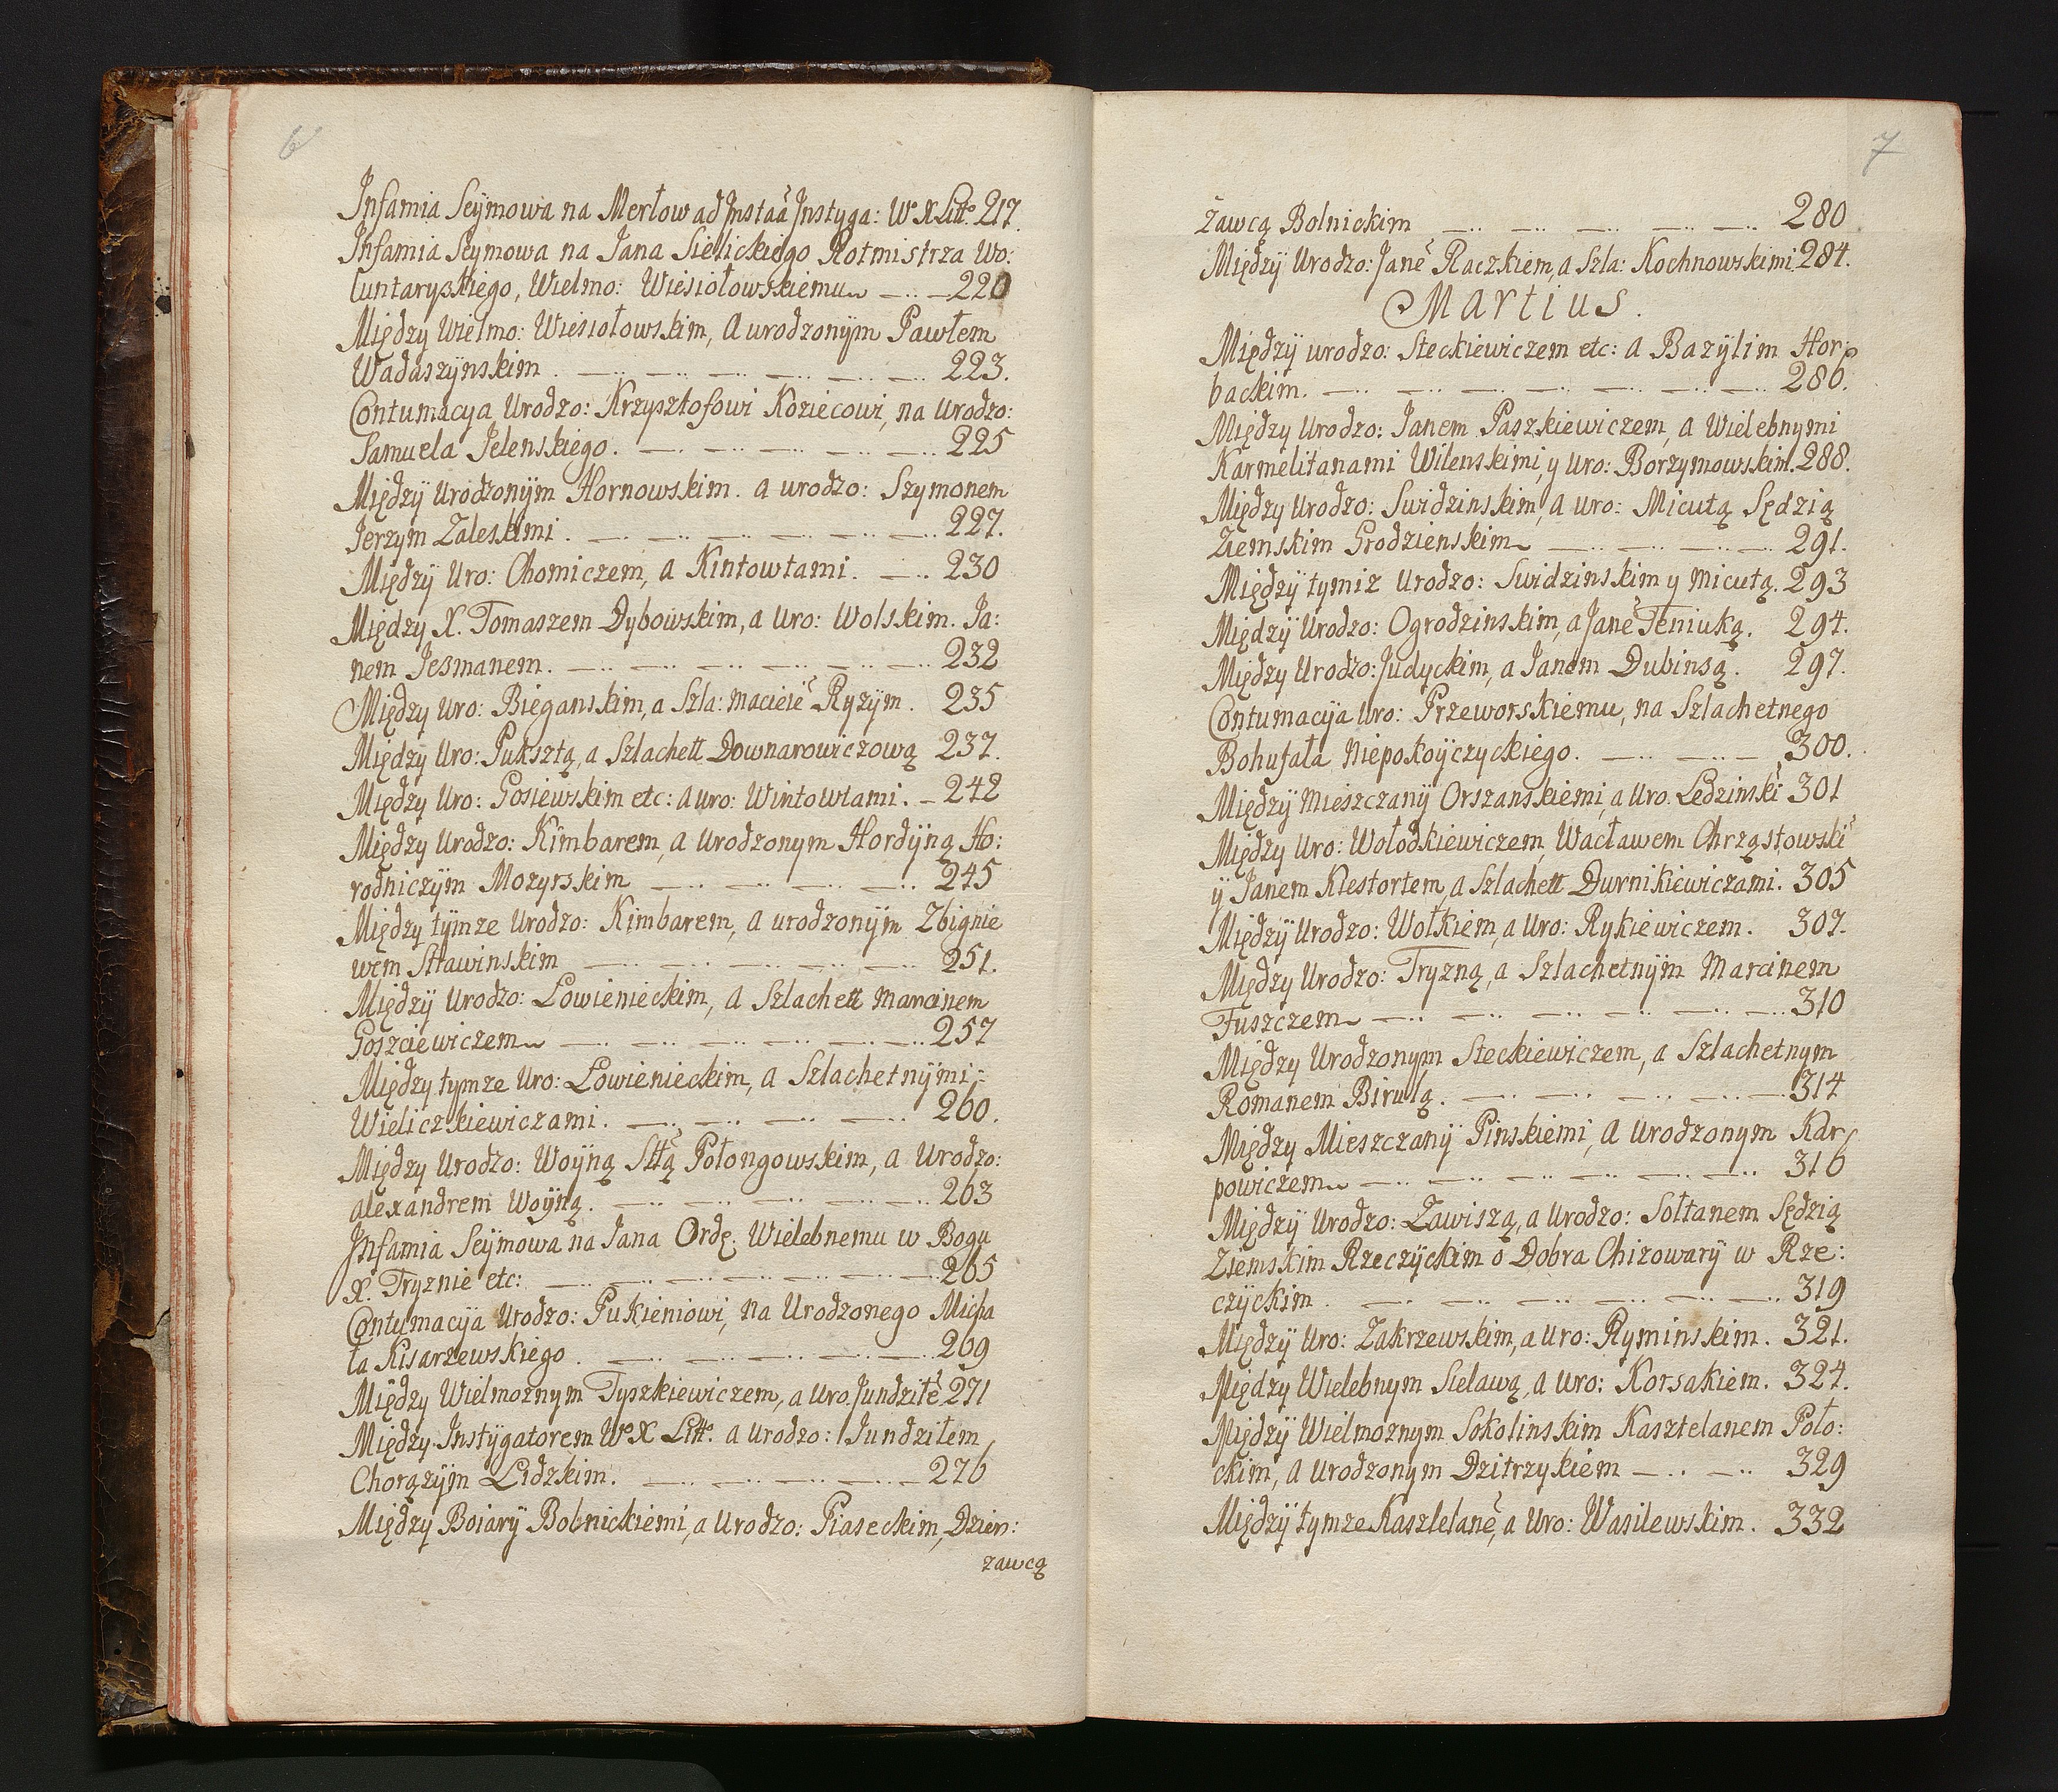 6
Infamia Seymowa na Merłow ad Instaã Instyga: Wº X Littº. 217.
Infamia Seymowa na Jana Sielickiego Rotmistrza Wo:
luntaryskiego, Wielmo: Wiesiołowskiemu — 220
Między Wielmo: Wiesiołowskim, a urodzonym Pawłem
Wadaszynskim . — 223.
Contumacya Urodzo: Krzysztofowi Koziecowi, na Urodzo:
Samuela Jelenskiego. — 225
Między Urodzonym Hornowskim. a urodzo: Szymonem
Jerzym Zaleskimi . — 227.
Między Uro: Chomiczem, a Kintowtami. — 230
Między X. Tomaszem Dybowskim, a Uro: Wolskim. Ja:
nem Jeßmanem. — 232
Między Uro: Bieganskim, a Szla: Macieiẽ Ryzym. 235
Między Uro: Puksztą, a Szlachett Downarowiczową 237.
Między Uro: Gosiewskim etc: a uro: Wintowtami. — 242
Między Urodzo: Kimbarem, a Urodzonym Hordyną Ho:
rodniczym Mozyrskim — 245
Między tymze Urodzo: Kimbarem, a urodzonym Zbignie
wem Sławinskim — 251.
Między Urodzo: Łowienieckim, a Szlachett Marcinem
Goszciewiczem — 257
Między tymze Uro: Łowienieckim, a Szlachetnymi:
Wieliczkiewiczami. — 260.
Między Urodzo: Woyną Sttą Połongowskim, a Urodzo:
alexandrem Woyną. — 263
Infamia Seymowa na Jana Ordę. Wielebnemu w Bogu
X. Tryznie etc: — 265
Contumacya Urodzo: Pukieniowi, na Urodzonego Micha
ła Kisarzewskiego . — 269
Między Wielmoznym Tyszkiewiczem, a uro. Jundziłẽ 271
Między Instygatorem Wº X Littº. a Urodzo: Jundziłem
Chorązym Lidzkim. — 276
Między Boiary Bolnickiemi, a Urodzo: Piaseckim, Dzier:
zawcą
7
zawcą Bolnickim — 280
Między Urodzo: Janẽ Raczkiem, a Szla: Kochnowskimi 284.
Martius.
Między urodzo: Steckiewiczem etc: a Bazylim Hor:
backim. — 286.
Między Urodzo: Janem Paszkiewiczem, a Wielebnymi
Karmelitanami Wilenskimi, y Uro: Borzymowskim. 288.
Między Urodzo: Swidzinskim, a uro: Micutą Sędzią
Ziemskim Grodzienskim — 291.
Między tymiz Urodzo: Swidzinskim y Micutą. 293
Między Urodzo: Ogrodzinskim, a Janẽ Teniuką. 294.
Między Urodzo: Judyckim, a Janem Dubinsą. 297.
Contumacya Uro: Przeworskiemu, na Szlachetnego
Bohufała Niepokoyczyckiego. — 300.
Między Mieszczany Orszanskiemi, a Uro. Ledzinskĩ 301
Między Uro: Wołodkiewiczem, Wacławem Chrząstowskĩ
y Janem Klestortem, a Szlachett Durnikiewiczami. 305
Między Urodzo: Wołkiem, a Uro: Rykiewiczem. 307.
Między Urodzo: Tryzną, a Szlachetnym Marcinem
Tuszczem — 310
Między Urodzonym Steckiewiczem, a Szlachetnym
Romanem Birulą. — 314
Między Mieszczany Pinskiemi, a Urodzonym Kar
powiczem — 316
Między Urodzo: Zawiszą, a Urodzo: Sołtanem Sędzią
Ziemskim Rzeczyckim o Dobra Chizowary w Rze:
czyckim . — 319
Między Uro: Zakrzewskim, a Uro: Ryminskim. 321.
Między Wielebnym Sielawą, a Uro: Korsakiem. 324.
Między Wielmoznym Sokolinskim Kasztelanem Poło:
ckim, a Urodzonym Dzitrzykiem — 329
Między tymze Kasztelanẽ, a Uro: Wasilewskim. 332